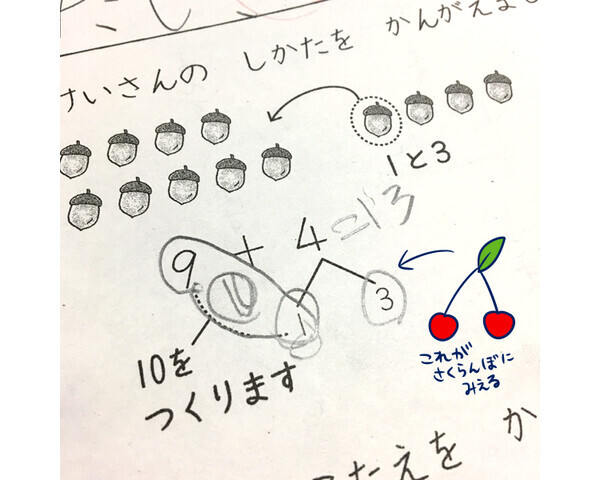 けいさんの しかたを かんがえま
1と3
9 + 4 =13
10
1 3
10を
つくります
これが
さくらんぼに
みえる
たえを か